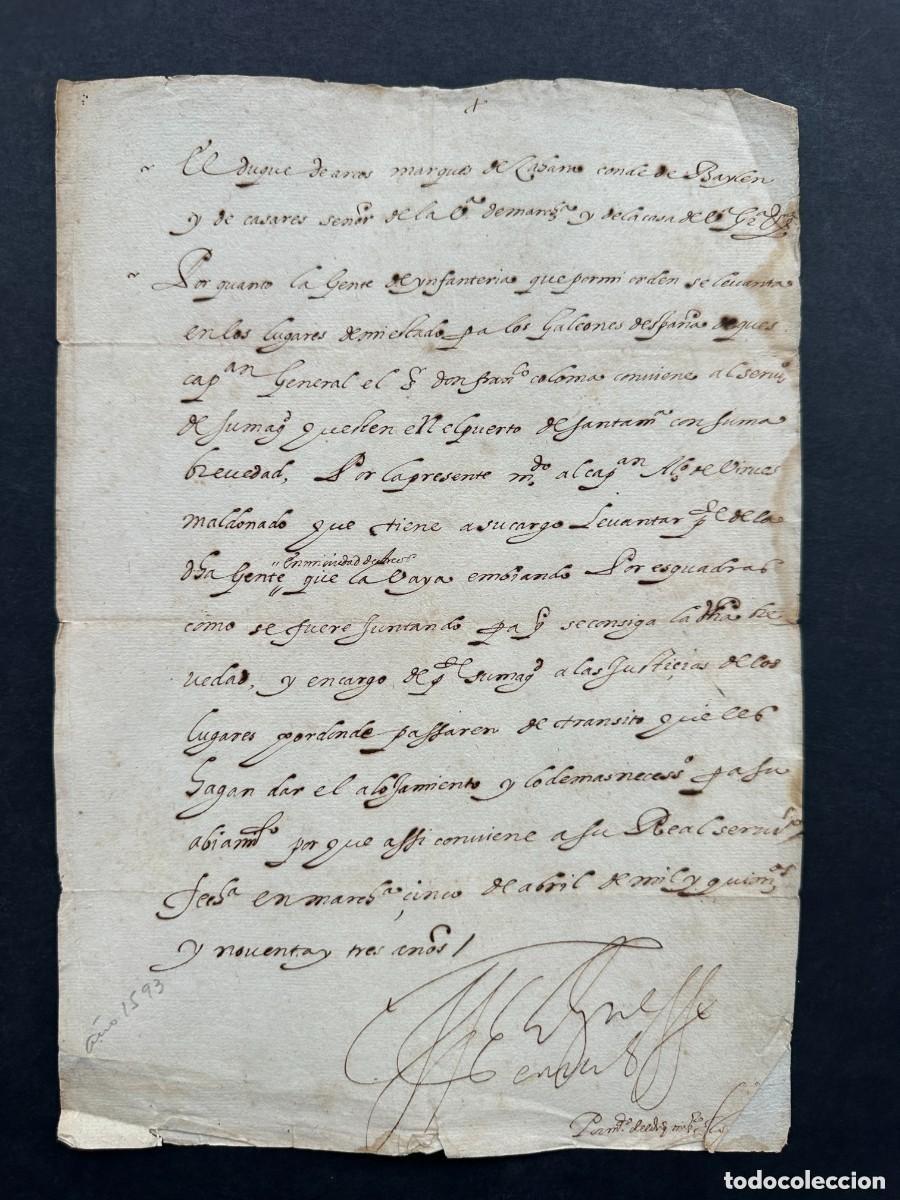 +
El duque de arcos marques de Zahara conde de Baylen
y de casares señor de la Vª de marchª y de la casa de Vª Grª
Por quanto la gente de ynfanteria que por mi orden se levanta
en los lugares de mi estado pa los galeones despaña de ques
capan general el Sr don franco coloma conviene al servio
de su magd questen en el puerto de santa mª con suma
brevedad, Por la presente mdo al capan Alo de Virues
maldonado que tiene a su cargo Levantar pte de la
dha gente en mi ciudad de Arcos que la vaya embiando Por esquadras
como se fuere juntando pa q se consiga la dha bre
vedad, y encargo de pte de su magd a las Justiçias de los
lugares por donde passaren de transito que les
hagan dar el alojamiento y lo demas necesso pa su
abiamto por que assi conviene a su Real servio
fecha en marchª cinco de abril de mil y quios
y noventa y tres años /
año 1593
El Duque
Por mdo del duq mi sr
todocoleccion